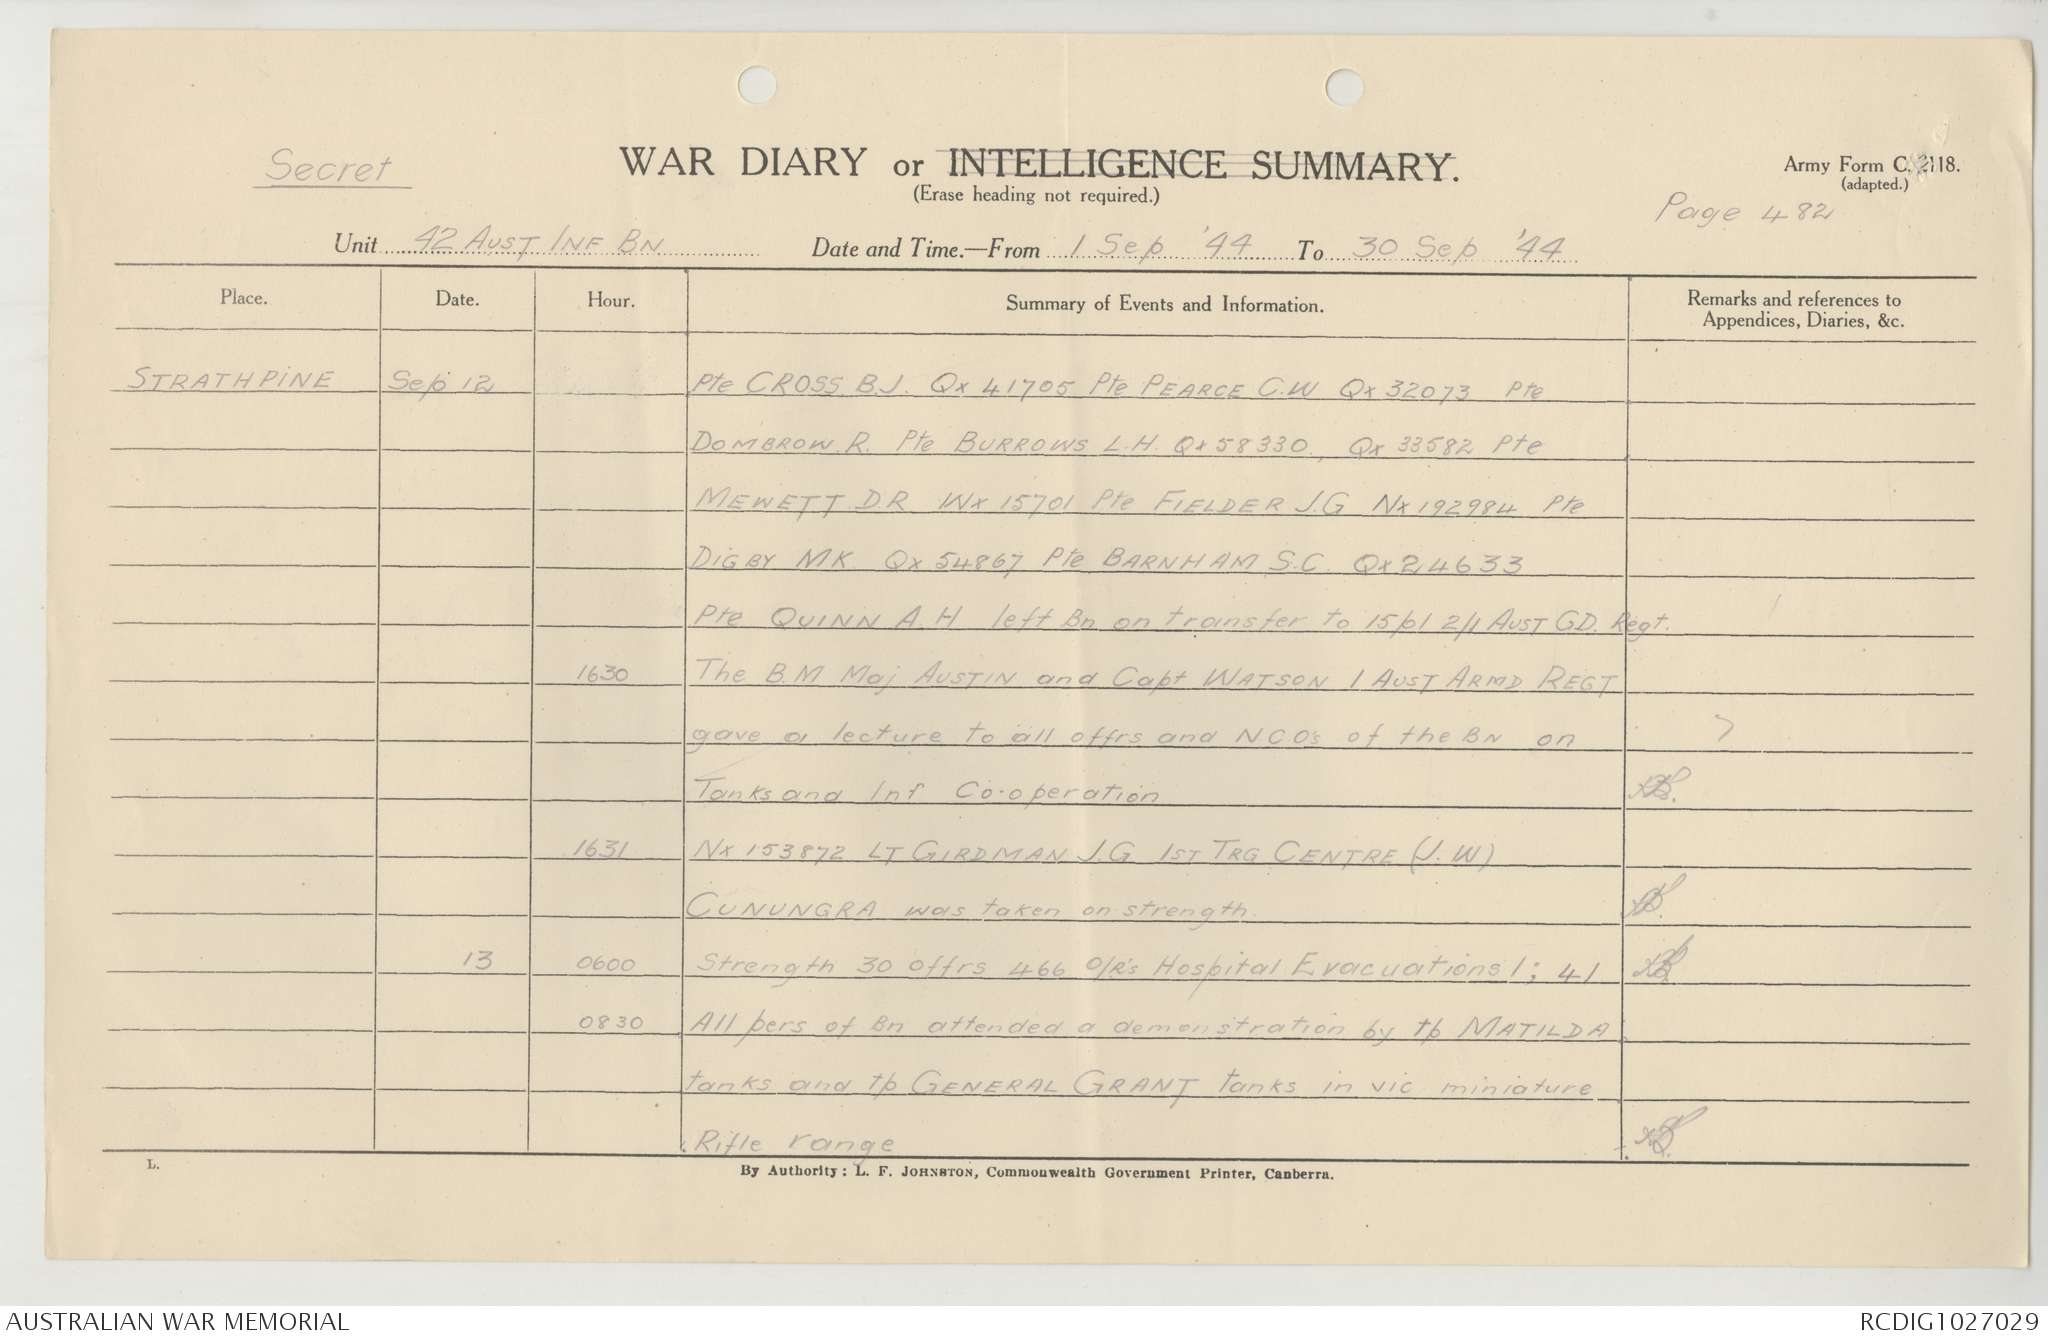 Secret
WAR DIARY or INTELLIGENCE SUMMARY.
(Erase heading not required.)
Army Form C. 2118.
(adapted.)
Page 482
Unit 42 AUST INF BN Date and Time.—From 1 Sep '44 To 30 Sep '44
Place. Date. Hour. Summary of Events and Information. Remarks and references to Appendices, Diaries, &c.
STRATHPINE Sep 12 Pte CROSS. B.J. Qx 41705 Pte PEARCE C.W Qx 32073 Pte
DOMBROW. R. Pte BURROWS L.H. Qx 58330, Qx 33582 Pte
MEWETT D.R. Wx 15701 Pte FIELDER J.G Nx 192984 Pte
DIGBY M.K. Qx 54867 Pte BARNHAM S.C. Qx 24633
Pte QUINN A.H left Bn on transfer to 15/pl 2/1 AUST GD. Regt.
1630 The B.M Maj AUSTIN and Capt WATSON 1 AUST ARMD REGT
gave a lecture to all offrs and NCO's of the BN on
Tanks and Inf Co-operation
1631 Nx 153872 LT GIRDMAN J.G 1ST TRG CENTRE (J.W)
CUNUNGRA was taken on strength.
13 0600 Strength 30 offrs 466 O/R's Hospital Evacuations 1; 41
0830 All pers of Bn attended a demonstration by tp MATILDA
tanks and tp GENERAL GRANT tanks in vic miniature
Rifle range
L.
By Authority: L. F. JOHNSTON, Commonwealth Government Printer, Canberra.
AUSTRALIAN WAR MEMORIAL
RCDIG1027029